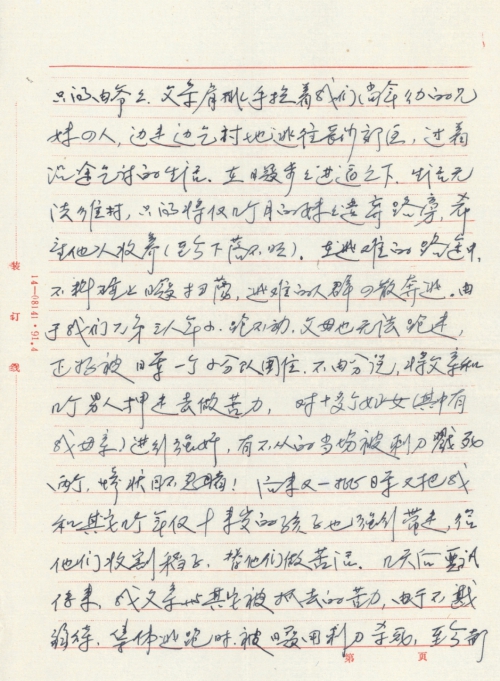 只的由爷爷、父亲肩挑手拉着我们尚年幼的兄
妹四人,边走边乞村地逃往长沙郊区,过着
沿途乞讨的生活。在日寇步步进逼之下,生活无
法维持,只的将仅几个月的妹妹遗弃路旁,希
望他人收养(至今下落不明)。在逃难的路途中,
不料碰上日寇扫荡,逃难的人群四散奔逃。由
于我们兄弟三人年小跑不动,父母也无法跑走,
正好被日军一个小分队围住。不由分说,将父亲和
几个男人押走去做苦力,对十多个妇女(其中有
我母亲)进行强奸,有不从的当场被刺刀戳死
两个,惨状目不忍睹!后来又一批日军又把我
和其它几个年仅十来岁的孩子也强行带走,给
他们收割稻子,替他们做苦活。几天后
传来,我父亲与其它被抓去的苦力,由于不堪
虐待,集体逃跑时,被日寇用刺刀杀死,至今都
装
订
线
14—08141·91.4
第 页